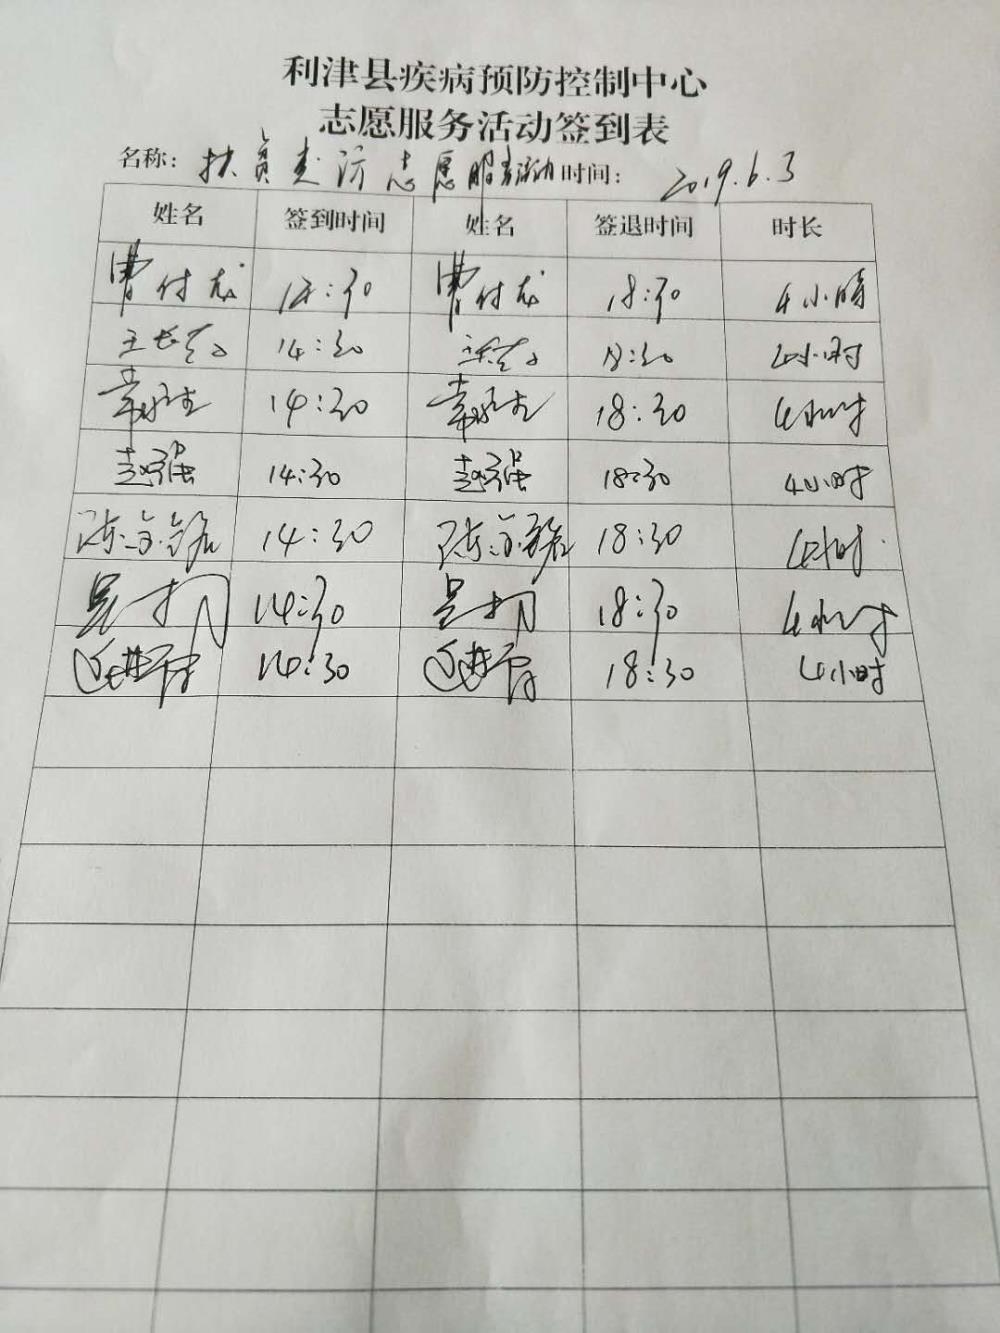 利津县疾病预防控制中心
志愿服务活动签到表
名称：扶贫走访志愿服务活动 时间：2019.6.3
姓名 签到时间 姓名 签退时间 时长
曹付龙 14:30 曹付龙 18:30 4小时
14:30 18:30 4小时
14:30 18:30 4小时
赵强 14:30 赵强 18:30 4小时
14:30 18:30 4小时
14:30 18:30 4小时
14:30 18:30 4小时